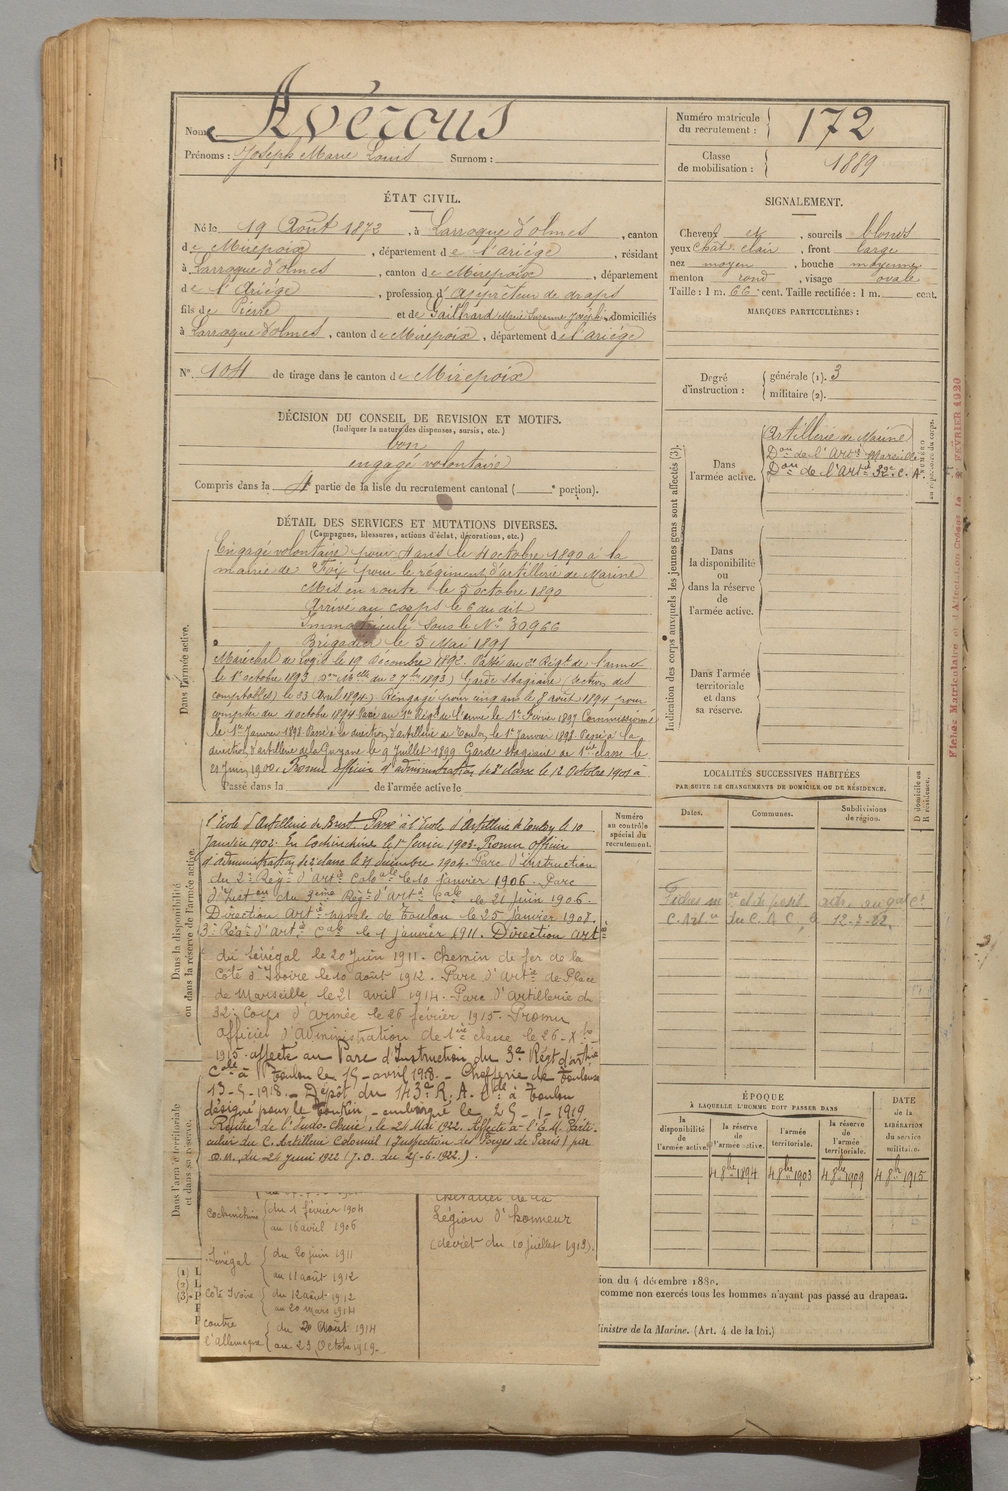 Nom : Avérous
Prénoms : Joseph Marie Louis Surnom :
Numéro matricule du recrutement : 172
Classe de mobilisation : 1889
ÉTAT CIVIL.
Né le 19 Août 1872, à Larroque d'olmes, canton
de Mirepoix, département de l'ariége, résidant
à Larroque d'olmes, canton de Mirepoix, département
de l'Ariége, profession d'aspprêteur de draps
fils de Pierre et de Gailhard Marie Suzanne Josephe, domiciliés
à Larroque d'olmes, canton de Mirepoix, département de l'ariége
N° 104 de tirage dans le canton de Mirepoix
DÉCISION DU CONSEIL DE REVISION ET MOTIFS.
(Indiquer la nature des dispenses, sursis, etc.)
bon
engagé volontaire
Compris dans la 4 partie de la liste du recrutement cantonal ( e portion).
DÉTAIL DES SERVICES ET MUTATIONS DIVERSES.
(Campagnes, blessures, actions d'éclat, décorations, etc.)
Dans l'armée active.
Engagé volontaire pour 4 ans le 4 octobre 1890 à la
mairie de Foix pour le régiment d'artillerie de Marine
Mis en route le 5 octobre 1890
Arrivé au corps le 6 du dit
Immatriculé sous le N° 30966
Brigadier le 5 Mai 1891
Maréchal de Logis le 19 décembre 1892. Passé au 2e Régt de l'arme
le 1er octobre 1893 (Don Mlle du 27 7bre 1893) Garde stagiaire (section des
comptables) le 23 Avril 1894. Rengagé pour cinq ans le 8 août 1894 pour
compter du 4 octobre 1894. Passé au 1er Régt de l'arme le 1er Février 1897. Commissionné
le 1er Janvier 1898. Passé à la direction d'artillerie de Toulon le 1er Janvier 1898. Passé à la
direction d'artillerie de la Guyane le 9 Juillet 1899. Garde stagiaire de 1ère classe le
Juin 1900. Promu officier d'administration de 3e classe le 12 Octobre 1901 à
Passé dans la de l'armée active le
Dans la disponibilité ou dans la réserve de l'armée active.
l'Ecole d'Artillerie de Brest. Passé à l'Ecole d'Artillerie de Toulon le 10
Janvier 1902. En Cochinchine le 1er février 1903. Promu officier
d'administration de 2e classe le 4 décembre 1904. Parc d'instruction
du 2e Régt d'Artie Colole le 10 janvier 1906. Parc
d'Inston du 3ème Régt d'Artie Cale le 21 juin 1906.
Direction Artie navale de Toulon le 25 janvier 1908.
3e Régt d'Artie Cale le 1 janvier 1911. Direction art
du Sénégal le 20 Juin 1911. Chemin de fer de la
Côte d'Ivoire le 10 août 1912. Parc d'Artie de Place
de Marseille le 21 avril 1914. Parc d'Artillerie du
32e Corps d'Armée le 26 février 1915. Promu
Officier d'Administration de 1ère classe le 26-Xbre-
1915. affecté au Parc d'Instruction du 3e Régt d'artie
Cale à Toulon le 15 avril 1918. Chefferie de Toulouse
13-5-1918. Dépôt du 143e R. A. Cle à Toulon
désigné pour le Tonkin, embarqué le 25-1-1919
Rentré de l'Indo-Chine, le 24 Mai 1922. Affecté à l'E. M. Parti-
culier du C. Artillerie Colonial (Inspection des Forges de Paris) par
D.M. du 24 juin 1922 (J.O. du 25-6-1922).
Dans l'armée territoriale et dans sa réserve.
Cochinchine du 1 février 1904
au 16 avril 1906
Sénégal du 20 juin 1911
au 11 août 1912
Côte Ivoire du 12 août 1912
au 20 mars 1914
contre l'Allemagne du 20 Août 1914
au 23 Octobre 1919
Chevalier de la
Légion d'honneur
(décret du 10 juillet 1913).
SIGNALEMENT.
Cheveux et, sourcils blonds
yeux chât. clair, front large
nez moyen, bouche moyenne
menton rond, visage ovale
Taille : 1 m. 66 cent. Taille rectifiée : 1 m. cent.
MARQUES PARTICULIÈRES :
Degré d'instruction : générale (1). 3
militaire (2).
Indication des corps auxquels les jeunes gens sont affectés (3).
Dans l'armée active.
Artillerie de Marine
Don de l'Artie Marseille
Don de l'Artie 32e C. A.
NUMÉRO au répertoire du corps.
Dans la disponibilité ou dans la réserve de l'armée active.
Dans l'armée territoriale et dans sa réserve.
LOCALITÉS SUCCESSIVES HABITÉES
PAR SUITE DE CHANGEMENTS DE DOMICILE OU DE RÉSIDENCE.
Dates. Communes. Subdivisions de région. D domicile ou R résidence.
Numéro au contrôle spécial du recrutement.
C. Artie du C. A. C. 12-7-22.
ÉPOQUE
À LAQUELLE L'HOMME DOIT PASSER DANS
la disponibilité de l'armée active.
la réserve de l'armée active.
l'armée territoriale.
la réserve de l'armée territoriale.
DATE de la LIBÉRATION du service militaire.
4 8bre 1894 4 8bre 1903 4 8bre 1909 4 8bre 1915
ion du 4 décembre 1889.
comme non exercés tous les hommes n'ayant pas passé au drapeau.
Ministre de la Marine. (Art. 4 de la loi.)
FÉVRIER 1920